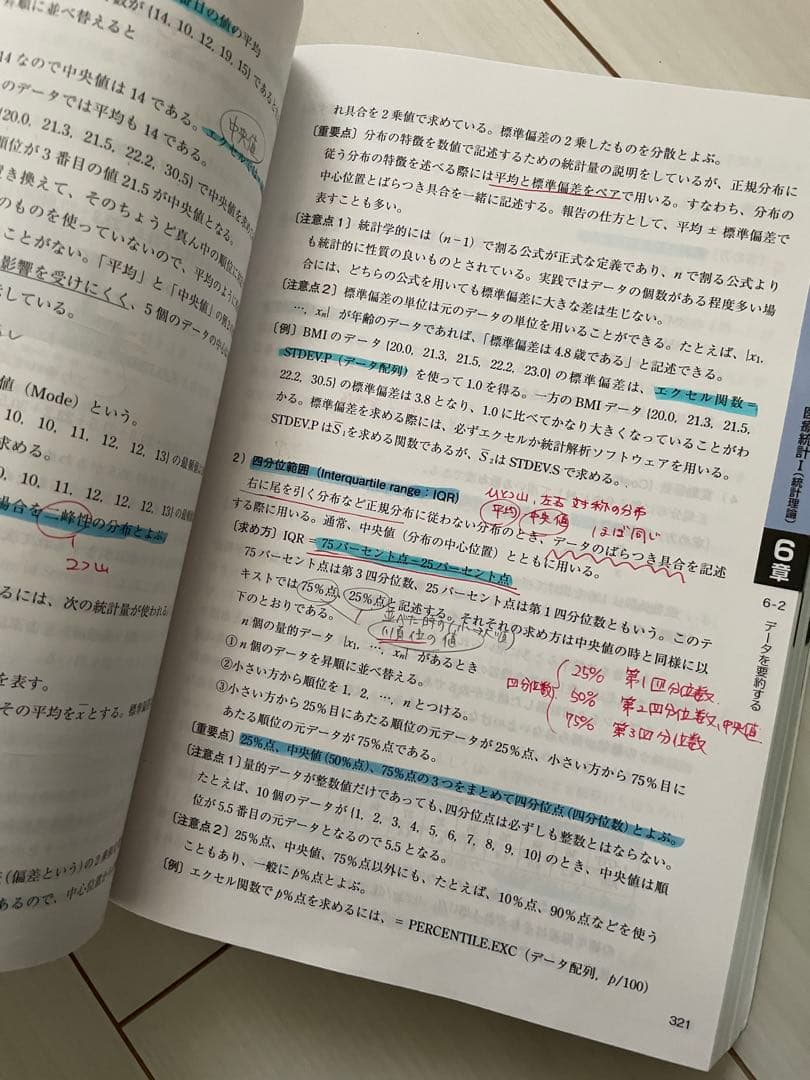 番目の値の平均
数が {14, 10, 12, 19, 15} であるとき
昇順に並べ替えると
14 なので中央値は 14 である。
のデータでは平均も 14 である。
中央値
{20.0, 21.3, 21.5, 22.2, 30.5} で中央値を求め
順位が 3 番目の値 21.5 が中央値となる。
き換えて、そのちょうど真ん中の順位に
のものを使っていないので、平均のように
ことがない。「平均」と「中央値」の
影響を受けにくく、5 個のデータの中心
している。
値（Mode）という。
10, 10, 11, 12, 12, 13} の最頻値
求める。
10, 10, 11, 12, 12, 12, 13} の最頻値
場合を二峰性の分布とよぶ
2つ山
るには、次の統計量が使われる
を表す。
その平均を x̄ とする。標準偏
（偏差という）の 2 乗
あるので、中心位置か
れ具合を 2 乗値で求めている。標準偏差の 2 乗したものを分散とよぶ。
〔重要点〕分布の特徴を数値で記述するための統計量の説明をしているが、正規分布に
従う分布の特徴を述べる際には平均と標準偏差をペアで用いる。すなわち、分布の
中心位置とばらつき具合を一緒に記述する。報告の仕方として、平均 ± 標準偏差で
表すことも多い。
〔注意点 1〕統計学的には (n−1) で割る公式が正式な定義であり、n で割る公式より
も統計的に性質の良いものとされている。実践ではデータの個数がある程度多い場
合には、どちらの公式を用いても標準偏差に大きな差は生じない。
〔注意点 2〕標準偏差の単位は元のデータの単位を用いることができる。たとえば、{x₁,
…, xₙ} が年齢のデータであれば、「標準偏差は 4.8 歳である」と記述できる。
〔例〕BMI のデータ {20.0, 21.3, 21.5, 22.2, 23.0} の標準偏差は、エクセル関数＝
STDEV.P（データ配列）を使って 1.0 を得る。一方の BMI データ {20.0, 21.3, 21.5,
22.2, 30.5} の標準偏差は 3.8 となり、1.0 に比べてかなり大きくなっていることがわ
かる。標準偏差を求める際には、必ずエクセルか統計解析ソフトウェアを用いる。
STDEV.P は S̄₁ を求める関数であるが、S̄₂ は STDEV.S で求める。
2）四分位範囲（Interquartile range：IQR）
ひと山、左右対称の分布
平均 中央値 ほぼ同じ
右に尾を引く分布など正規分布に従わない分布のとき、データのばらつき具合を記述
する際に用いる。通常、中央値（分布の中心位置）とともに用いる。
〔求め方〕IQR＝75 パーセント点−25 パーセント点
75 パーセント点は第 3 四分位数、25 パーセント点は第 1 四分位数ともいう。このテ
キストでは 75%点、25%点と記述する。それぞれの求め方は中央値の時と同様に以
下のとおりである。
並べた時の
順位の値
n 個の量的データ {x₁, …, xₙ} があるとき
①n 個のデータを昇順に並べ替える。
②小さい方から順位を 1, 2, …, n とつける。
③小さい方から 25%目にあたる順位の元データが 25%点、小さい方から 75%目に
あたる順位の元データが 75%点である。
四分位数
25% 第1四分位数
50% 第2四分位数、中央値
75% 第3四分位数
〔重要点〕25%点、中央値（50%点）、75%点の 3 つをまとめて四分位点（四分位数）とよぶ。
〔注意点 1〕量的データが整数値だけであっても、四分位点は必ずしも整数とはならない。
たとえば、10 個のデータが {1, 2, 3, 4, 5, 6, 7, 8, 9, 10} のとき、中央値は順
位が 5.5 番目の元データとなるので 5.5 となる。
〔注意点 2〕25%点、中央値、75%点以外にも、たとえば、10%点、90%点などを使う
こともあり、一般に p%点とよぶ。
〔例〕エクセル関数で p%点を求めるには、＝PERCENTILE.EXC（データ配列, p/100）
321
医療統計Ⅰ（統計理論）
6章
6-2 データを要約する